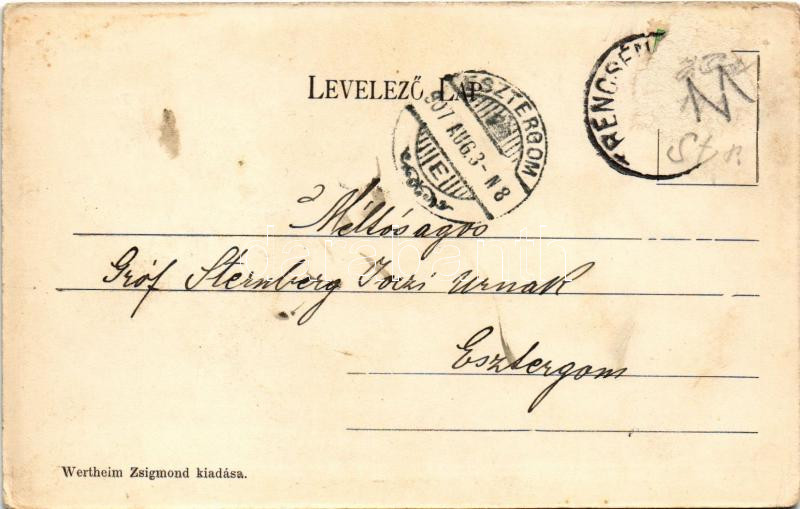 LEVELEZŐ LAP
ESZTERGOM
907 AUG. 3 - N 8
E
TRENCSÉN
M
Méltóságos
Gróf Sternberg Józsi urnak
Esztergom
Wertheim Zsigmond kiadása.